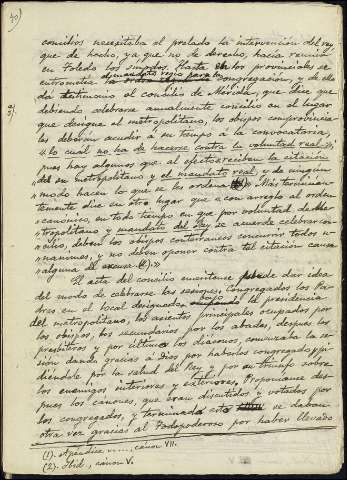 40)
concilios necesitaba el prelado la intervención del rey
que de hecho, ya que no de derecho, hacía reunir
en Toledo los sínodos. Hasta en los provinciales se
entrometía el mandato regio para la congregación, y de ello
da testimonio el concilio de Mérida, que dice que
debiendo celebrarse anualmente concilio en el lugar
que designe el metropolitano, los obispos comprovincia-
les deberán acudir á su tiempo á la convocatoria,
"lo cual no ha de hacerse contra la voluntad real",
pues hay algunos que al efecto reciben la citación
"del su metropolitano y el mandato real, y de ningún
"modo hacen lo que se les ordena Más terminan-
temente dice en otro lugar que "con arreglo al orden
"canónico, en todo tiempo en que por voluntad del Me-
"tropolitano y mandato del Rey se acuerde celebrar con-
"cilio, deben los obispos conterráneos concurrir todos u-
"nánimes, y no deben oponer contra tal citación causa
"alguna de excusa (2)."
El acta del concilio emeritense puede dar idea
del modo de celebrarse las sesiones. Congregados los Pa-
dres en el local designado, bajo la presidencia
del metropolitano, los asientos principales ocupados por
los obispos, los secundarios por los abades, después los
presbíteros y por último los diáconos, comenzaba la se-
sión dando gracias á Dios por haberlos congregado, pi-
diéndole por la salud del Rey y por su triunfo sobre
los enemigos interiores y exteriores. Proponíanse des-
pués los cánones, que eran discutidos y votados por
los congregados, y terminado esto se daban
otra vez gracias al Todopoderoso por haber llevado
(1). Apéndice ...., canon VII.
(2). Ibid., canon V.